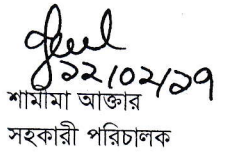 ১২/০২/১৭
শামীমা আক্তার
সহকারী পরিচালক